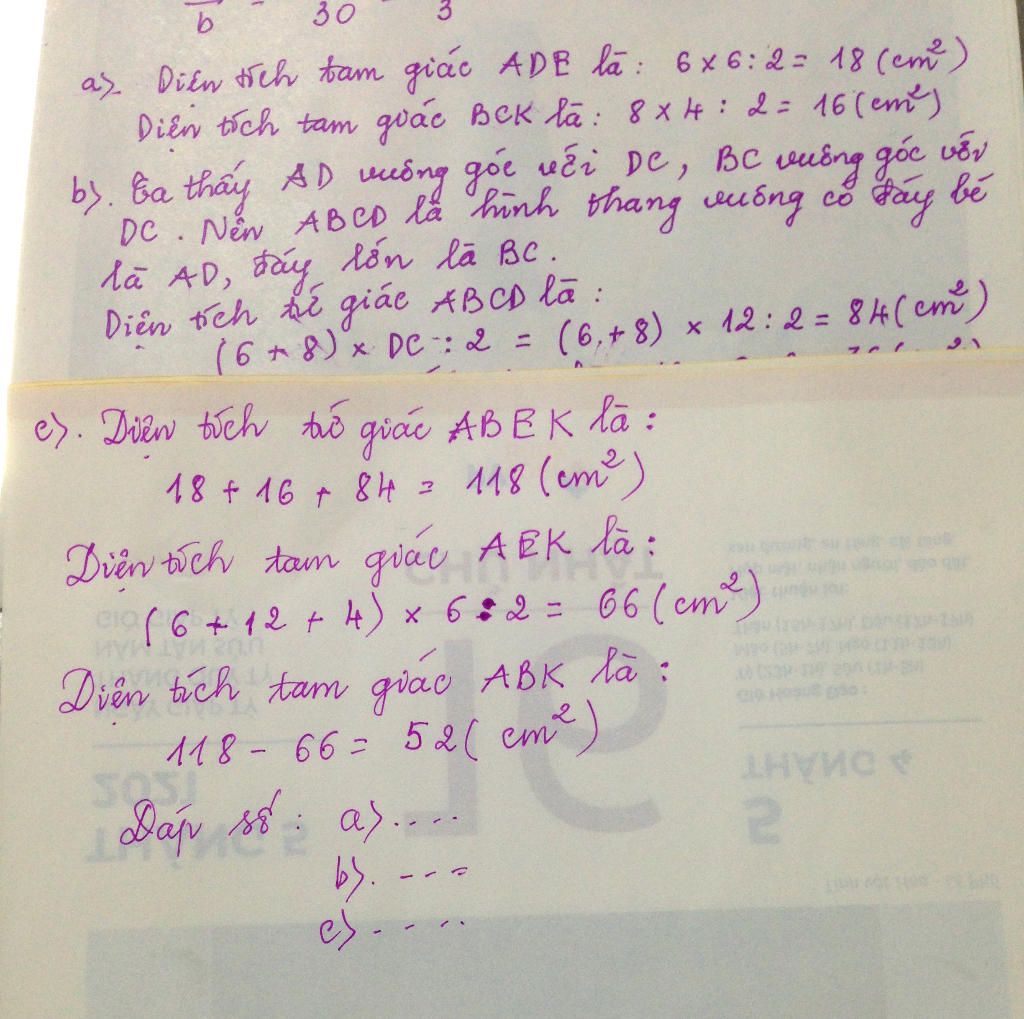 b 30 3
a). Diện tích tam giác ADE là: 6 x 6 : 2 = 18 (cm²)
Diện tích tam giác BCK là: 8 x 4 : 2 = 16 (cm²)
b). Ta thấy AD vuông góc với DC, BC vuông góc với
DC. Nên ABCD là hình thang vuông có đáy bé
là AD, đáy lớn là BC.
Diện tích tứ giác ABCD là:
(6 + 8) x DC : 2 = (6 + 8) x 12 : 2 = 84 (cm²)
c). Diện tích tứ giác ABEK là:
18 + 16 + 84 = 118 (cm²)
Diện tích tam giác AEK là:
(6 + 12 + 4) x 6 : 2 = 66 (cm²)
Diện tích tam giác ABK là:
118 - 66 = 52 (cm²)
Đáp số: a) ....
b). ---
c) ....
CHỦ NHẬT
GIỜ GIÁP TÝ
NĂM TÂN SỬU
THÁNG QUÝ TỴ
NGÀY GIÁP TÝ
Giờ Hoàng Đạo:
2021
THÁNG 5
THÁNG 4
5